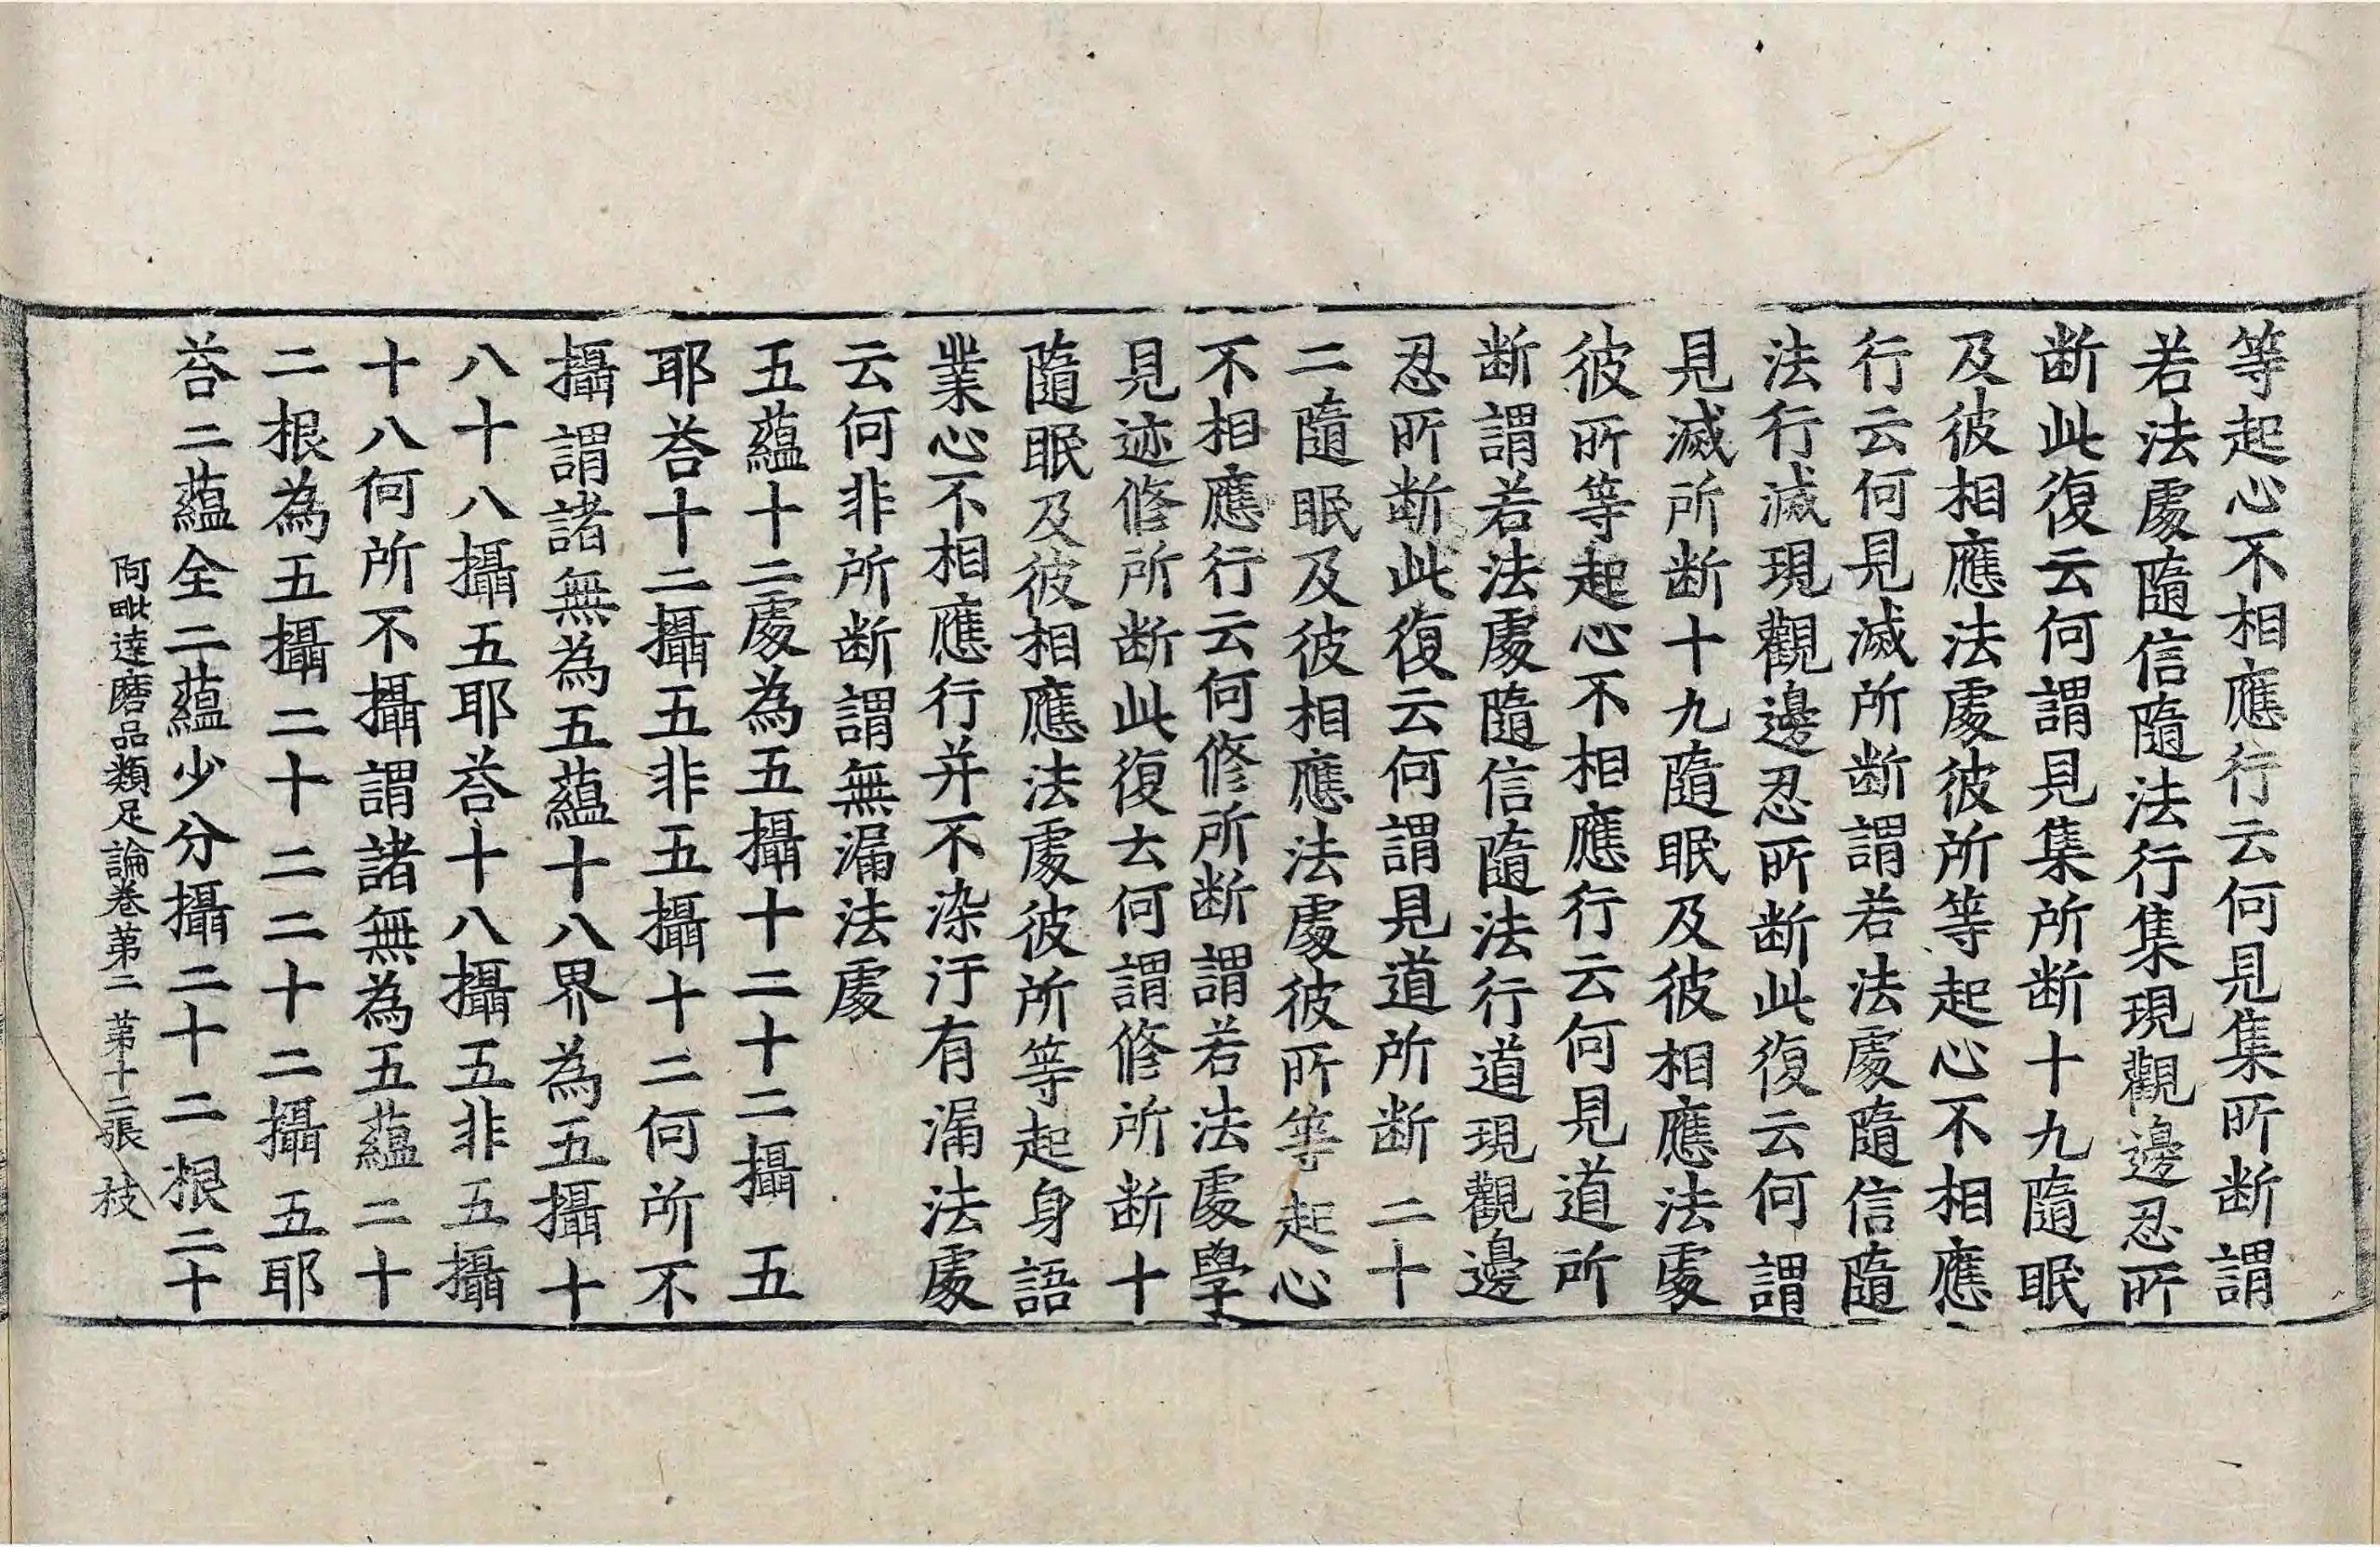 等起心不相應行云何見集所断謂
若法處隨信隨法行集現觀邊忍所
断此復云何謂見集所断十九隨眠
及彼相應法處彼所等起心不相應
行云何見滅所断謂若法處隨信隨
法行滅現觀邊忍所断此復云何謂
見滅所断十九隨眠及彼相應法處
彼所等起心不相應行云何見道所
断謂若法處隨信隨法行道現觀邊
忍所断此復云何謂見道所断二十
二隨眠及彼相應法處彼所等起心
不相應行云何修所断謂若法處學
見迹修所断此復云何謂修所断十
隨眠及彼相應法處彼所等起身語
業心不相應行并不染汙有漏法處
云何非所断謂無漏法處
五蘊十二處為五攝十二十二攝五
耶荅十二攝五非五攝十二何所不
攝謂諸無為五蘊十八界為五攝十
八十八攝五耶荅十八攝五非五攝
十八何所不攝謂諸無為五蘊二十
二根為五攝二十二二十二攝五耶
荅二蘊全二蘊少分攝二十二根二十
阿毗達磨品類足論卷第二 第十二張 枝